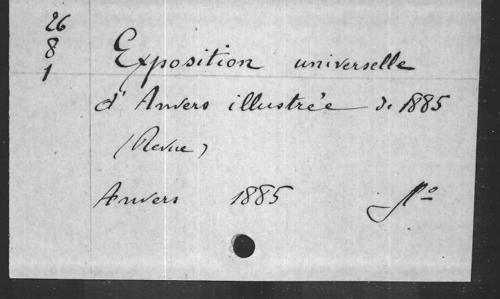 26
8
1
Exposition universelle
d'Anvers illustrée de 1885
(Revue)
Anvers 1885 fº